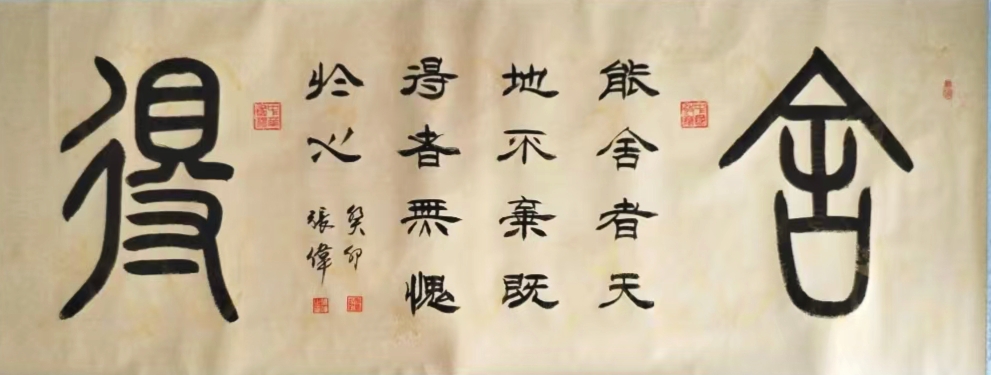 舍
能舍者天
地不棄既
得者無愧
於心
癸卯
張偉
得